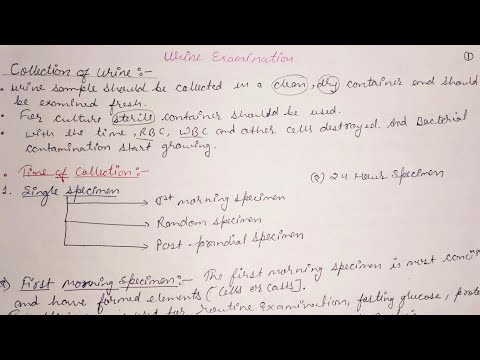 Urine Examination
①
Collection of Urine:-
• Urine sample should be collected in a clean, dry container and should
be examined fresh.
• For culture sterile container should be used.
• With the time, RBC, WBC and other cells destroyed. And Bacterial
contamination start growing.
• Time of Collection:-
1. Single specimen
(2) 24 Hour Specimen
→ 1st morning specimen
→ Random specimen
→ Post-prandial Specimen
First Morning Specimen:- The first morning specimen is most
and have formed elements [cells or casts].
used for routine Examination, fasting glucose,